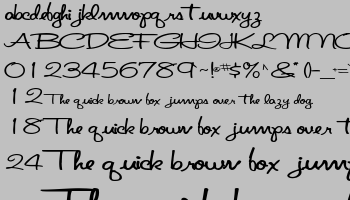 abcdefghi jklmnopq rst uvwxyz
ABCDEFGHIJKLMNO
0123456789
12 The quick brown fox jumps over the lazy dog
18 The quick brown fox jumps over
24 The quick brown fox